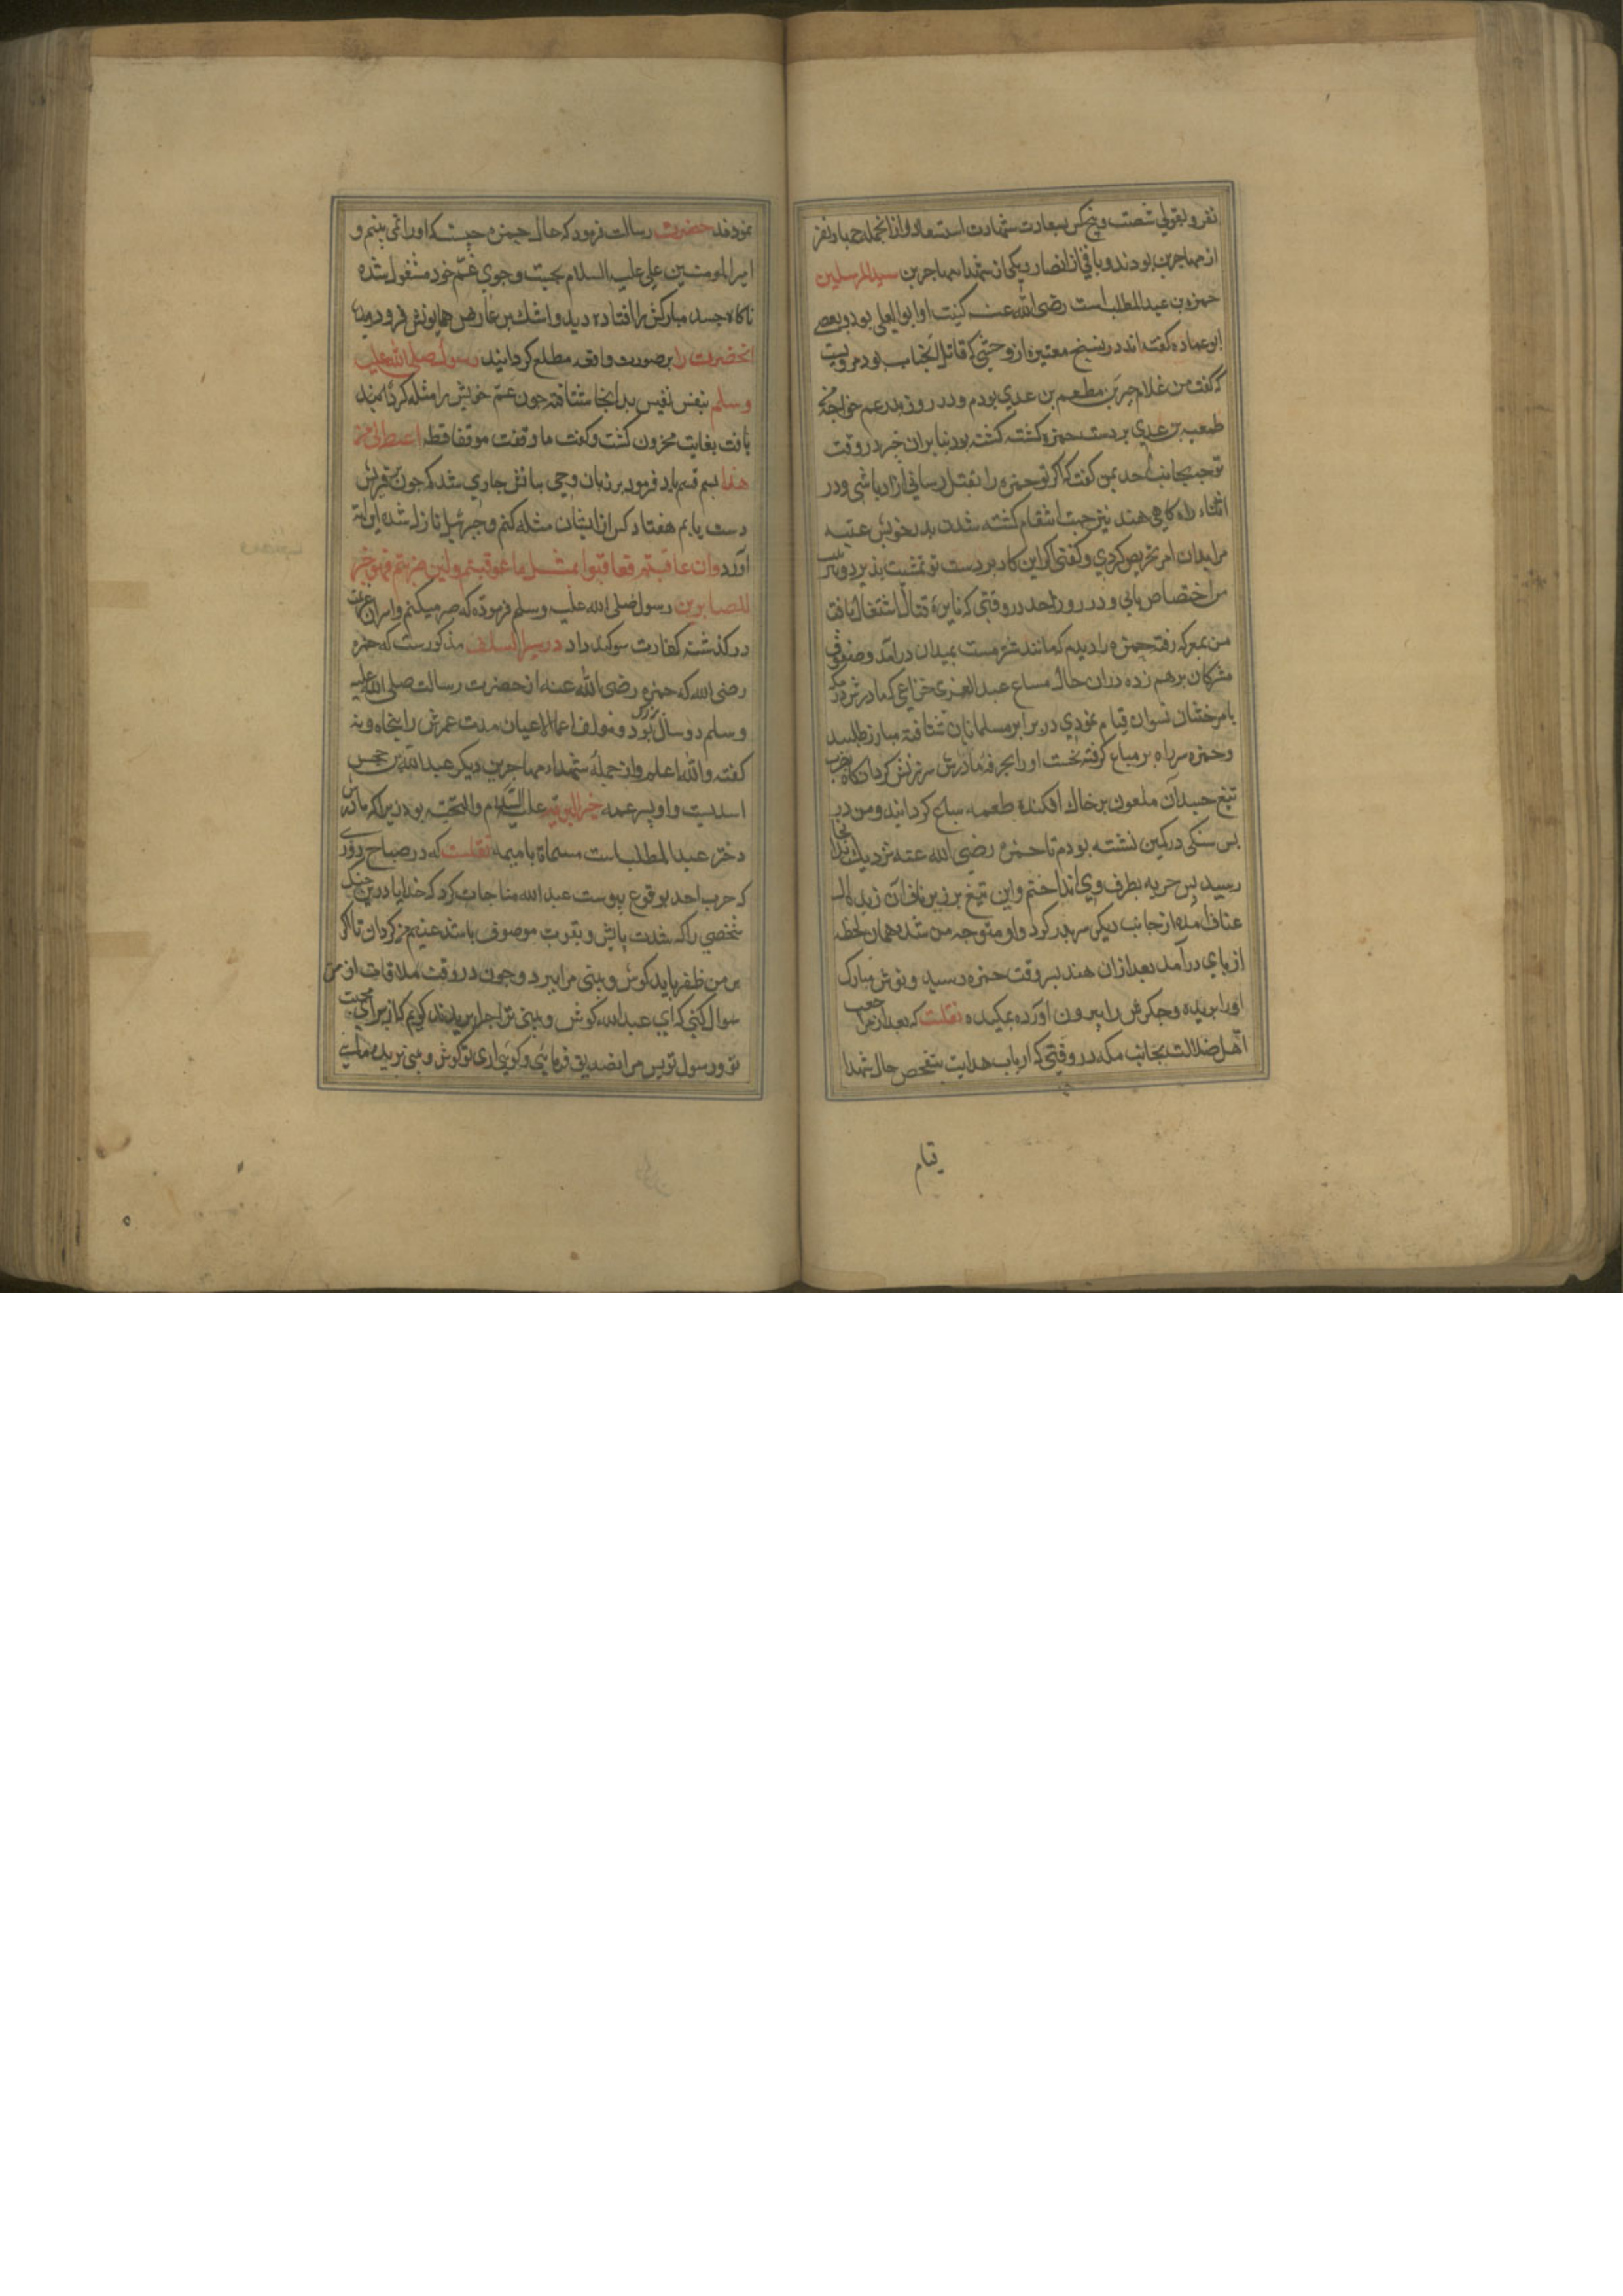 نفر و بقولی شصت و پنج کس بسعادت شهادت استسعاد و از انجمله چهار نفر
از مهاجرین بودند و باقی از انصار و یکی از شهداء مهاجرین سیدالمرسلین
حمزه بن عبدالمطلب است رضی الله عنه کنیت او ابو الیعلی بود و بعضی
ابو عماده گفته اند در نسخ معتبره از وحشی که قاتل آنجناب بود مرویست
که گفت من غلام جبیر بن مطعم بن عدی بودم و در روز بدر عم خواجهٔ
طعیمه بن عدی بر دست حمزه کشته گشته بود بنا بران جبیر در وقت
توجه بجانب احد بمن گفت که اگر تو حمزه را بقتل رسانی آزاد باشی و در
اثناء راه کاهی هند نیز جهت انتقام کشته شدن پدر خویش عتبه
مرا بدان امر تحریص کردی و گفتی اگر این کار بر دست تو تمشیت پذیرد
مرا اختصاص یابی و در روز احد در وقتی که نایرهٔ قتال اشتغال یافت
من بمعرکه رفته حمزه را دیدم که مانند شتر مست بمیدان درآمد و صفوف
مشرکان برهم زده دران حال سباع عبد العزی خزاعی که مادرش در مکه
بامر ختان نسوان قیام نمودی در برابر مسلمانان شتافته مبارز طلبید
و حمزه سر راه بر سباع گرفته نخست او را بحرفهٔ مادرش سرزنش کرد انکاه بضرب
تیغ جسد آن ملعون بر خاک افکنده طعمه سباع گردانید و من در
پس سنگی در کمین نشسته بودم تا حمزه رضی الله عنه نزدیک بدانجا
رسید پس حربه بطرف وی انداختم و این تیغ بر زیر ناف آن زبده ال
عبد مناف آمده از جانب دیگر سر بدر کرد و او متوجه من شده همان لحظه
از پای درآمد بعد ازان هند بسر وقت حمزه رسید و گوش مبارک
او را بریده و جگرش را بیرون آورده بمکیده نقلست که بعد از مراجعت
اهل ضلالت بجانب مکه در وقتی که ارباب هدایت بتفحص حال شهدا
قیام
نمودند حضرت رسالت فرمود که حال حمزه چیست که او را نمی بینم و
امیر المومنین علی علیه السلام بجست و جوی عم خود مشغول شده
ناکاه جسد مبارکش را افتاده دید و اشک بر عارض همایونش فرو دوید
انحضرت را بر صورت واقعه مطلع گردانید رسول صلی الله علیه
وسلم بنفس نفیس بدانجا شتافته چون عم خویش را مثله کرده
یافت بغایت محزون گشت و گفت ما وقفت موقفا قط اغیظ الی من
هذا پس قسم یاد فرمود بر زبان وحی بیانش جاری شد که چون بر قریش
دست یابم هفتاد کس از ایشان مثله کنم و جبرئیل نازل شده این ایة
آورد و ان عاقبتم فعاقبوا بمثل ما عوقبتم و لئن صبرتم فهو خیر
للصابرین رسول صلی الله علیه وسلم فرموده که صبر میکنم و از سر آن عزیمت
درگذشته کفارت سوگند داد در سیر السلف مذکورست که حمزه
رضی الله که حمزه رضی الله عنه از حضرت رسالت صلی الله علیه
وسلم دو سال بزرگ بود و مولف اعمال الاعیان مدت عمرش را پنجاه و نه
گفته و الله اعلم و از جملهٔ شهداء مهاجرین دیگر عبدالله بن جحش
اسدیست و او پسر عمه خیر البریه علیه السلام والتحیه بود زیرا که مادرش
دختر عبدالمطلب است مسماة بامیمه نقلست که در صباح روزی
که حرب احد بوقوع پیوست عبدالله مناجات کرد که خدایا در این جنگ
شخصی را که شدت باس و بقوت موصوف باشد غنیم من گردان تا اگر
بر من ظفر یابد گوش و بینی مرا ببرد و چون در وقت ملاقات از من
سوال کنی که ای عبدالله گوش و بینی ترا چرا بریدند گویم که از برای محبت
تو و رسول تو پس مرا تصدیق فرمایی و گویی اری تو گوش و بینی بریده